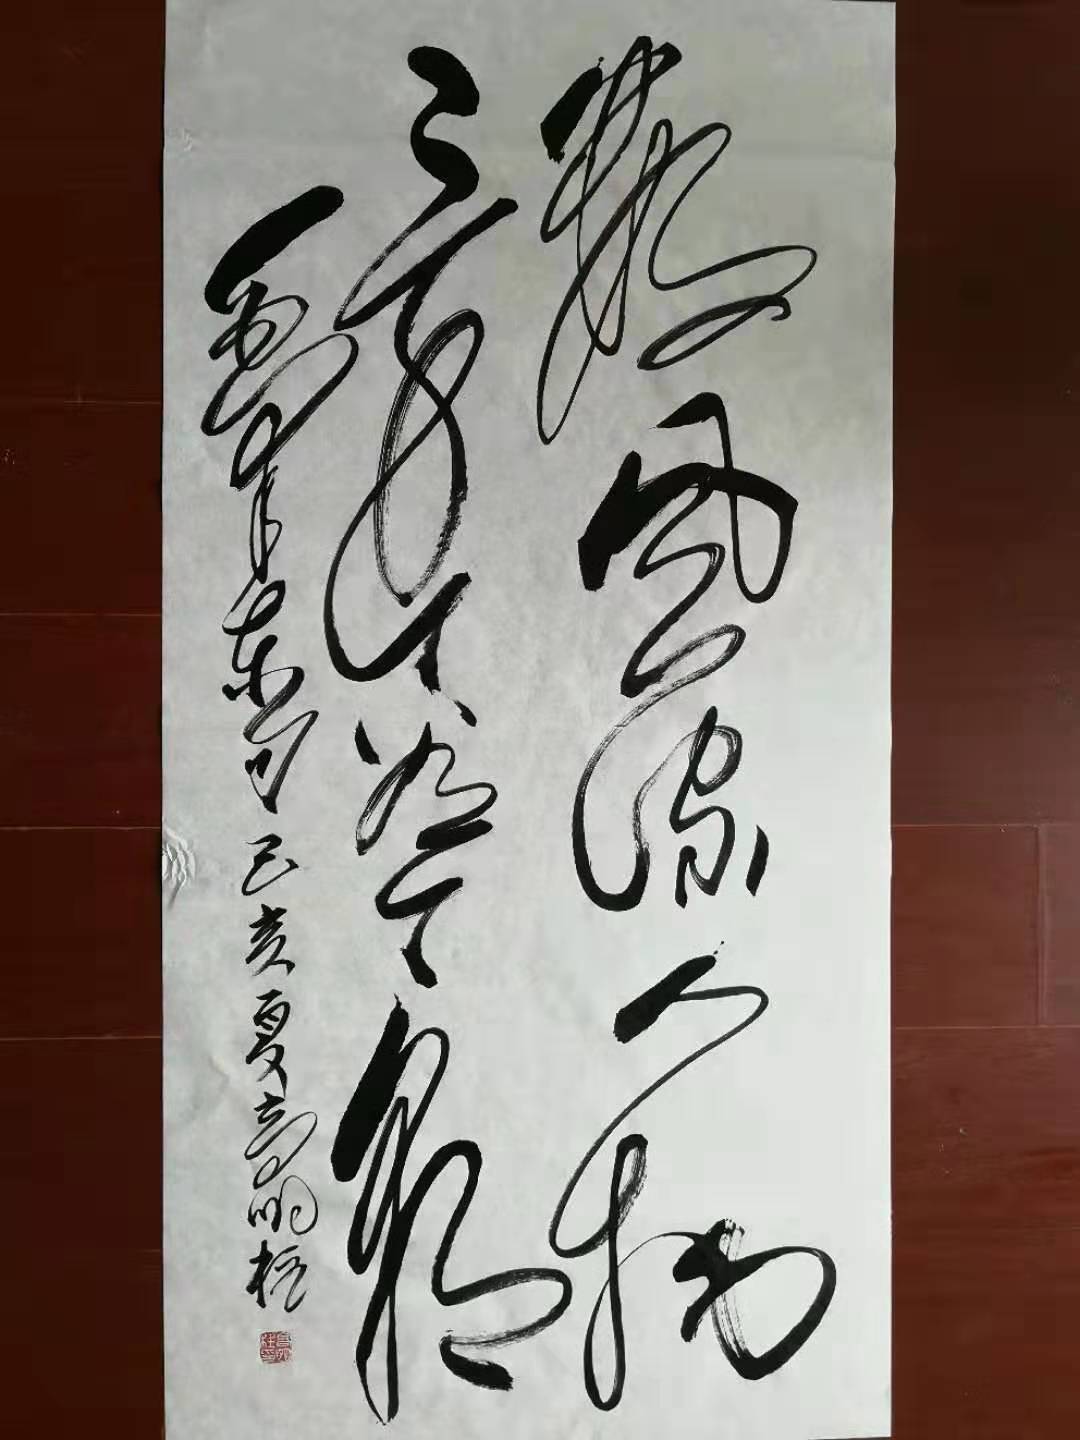 数风流人物
还看今朝
毛泽东句 己亥夏高明柱